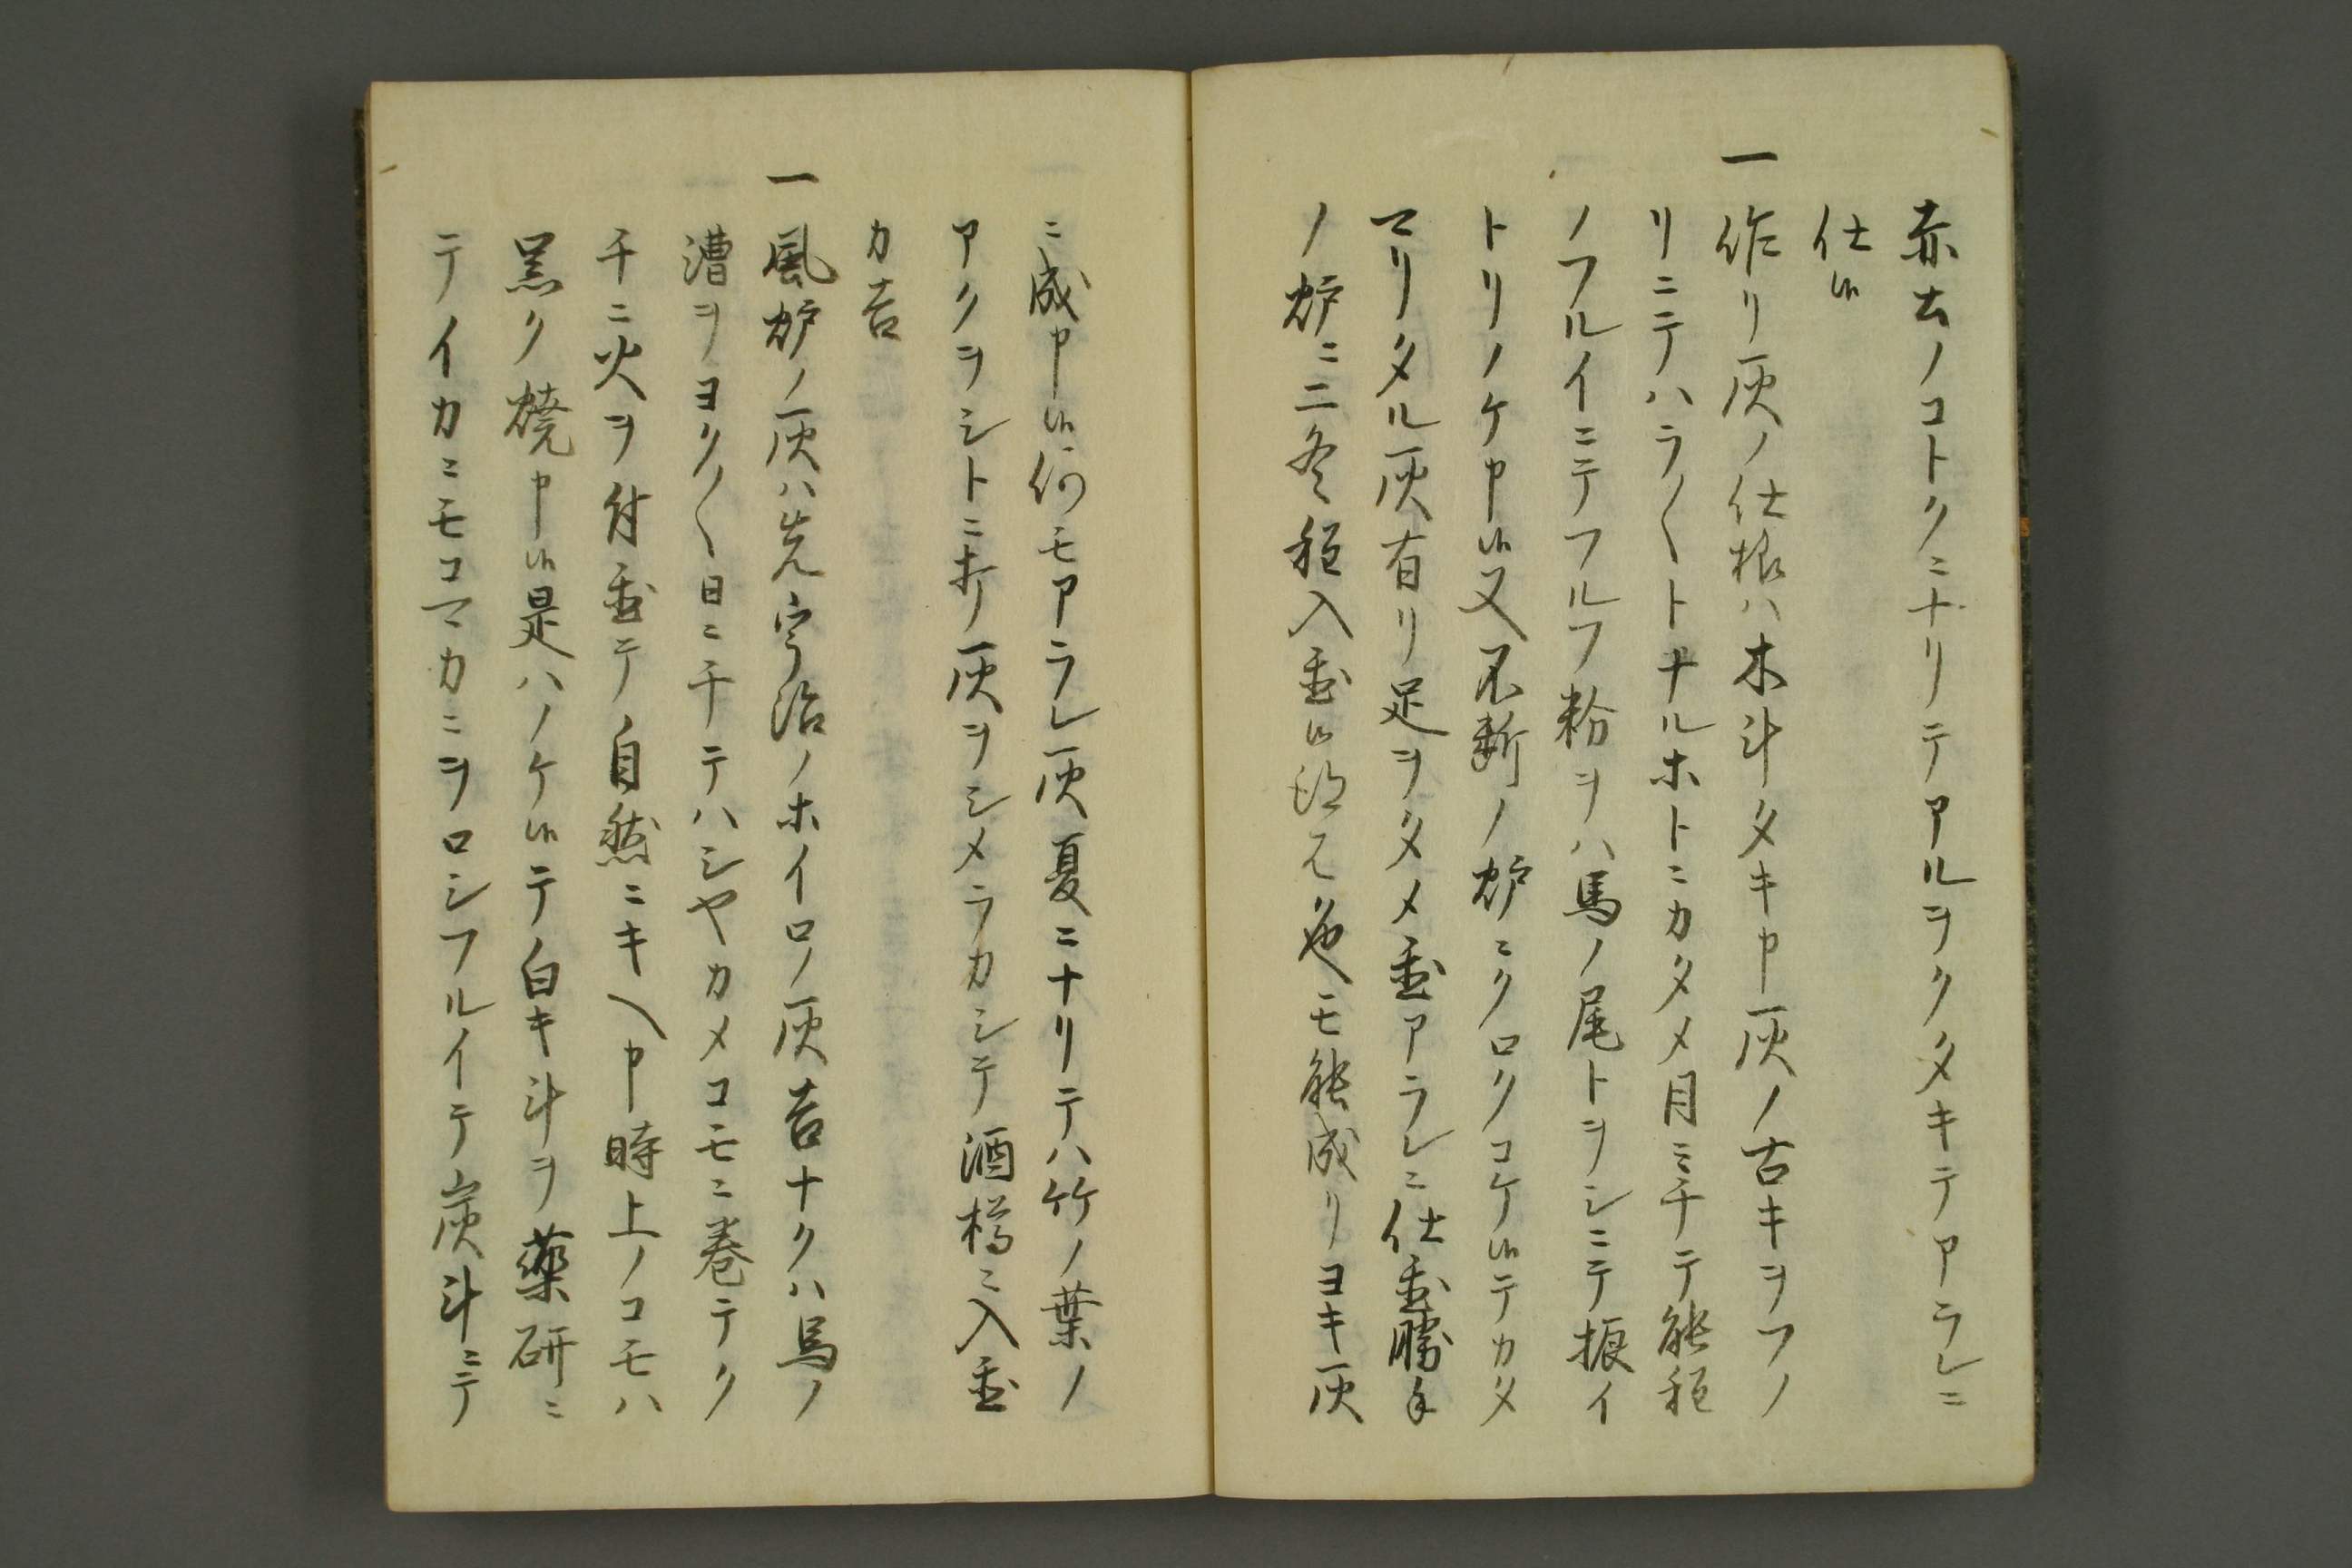 赤土ノコトクニナリテアルヲクタキテアラレニ
仕候
一作リ灰ノ仕様ハ木斗タキ申灰ノ古キヲフノ
リニテハラ〱トナルホトニカタメ月ニ干テ能程
ノフルイニテフルフ粉ヲハ馬ノ尾トヲシニテ振イ
トリノケ申候又不断ノ炉ニクロクコケ候テカタ
マリタル灰有リ足ヲタメ置アラレニ仕置勝手
ノ炉ニ二冬程入置候得ハ色モ能成リヨキ灰
ニ成申候何モアラレ灰夏ニナリテハ竹ノ葉ノ
アクヲシトニ打灰ヲシメラカシテ酒樽ニ入置
カ吉
一風炉ノ灰ハ先宇治ノホイロノ灰吉ナクハ馬ノ
漕ヲヨク〱日ニ干テハシヤカメコモニ巻テク
千ニ火ヲ付置テ自然ニキヘ申時上ノコモハ
黒ク焼申候是ハノケ候テ白キ斗ヲ薬研ニ
テイカニモコマカニヲロシフルイテ炭斗ニテ